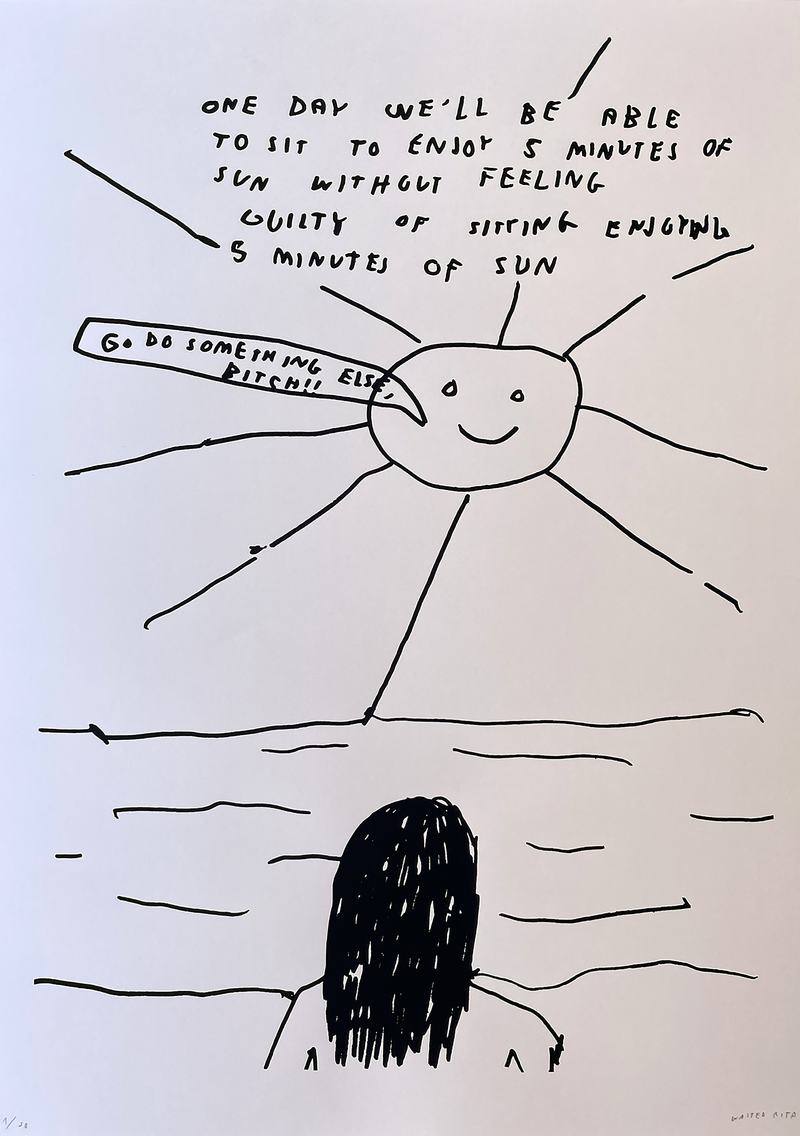 ONE DAY WE'LL BE ABLE
TO SIT TO ENJOY 5 MINUTES OF
SUN WITHOUT FEELING
GUILTY OF SITTING ENJOYING
5 MINUTES OF SUN
GO DO SOMETHING ELSE,
BITCH!!